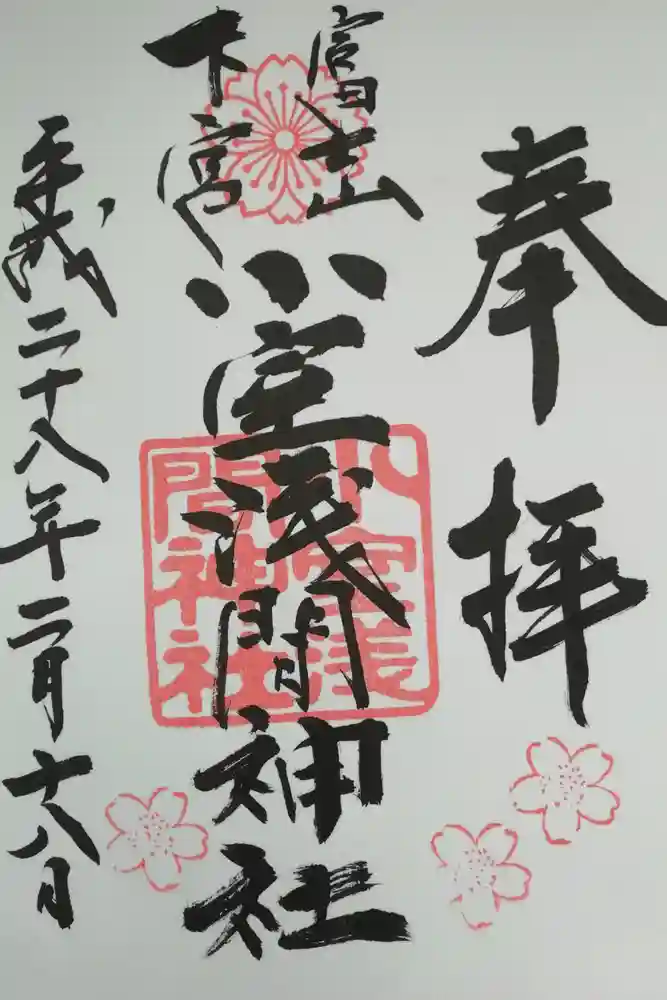 奉拝
富士山
下宮
小室浅間神社
小室浅
間神社
平成二十八年二月十八日